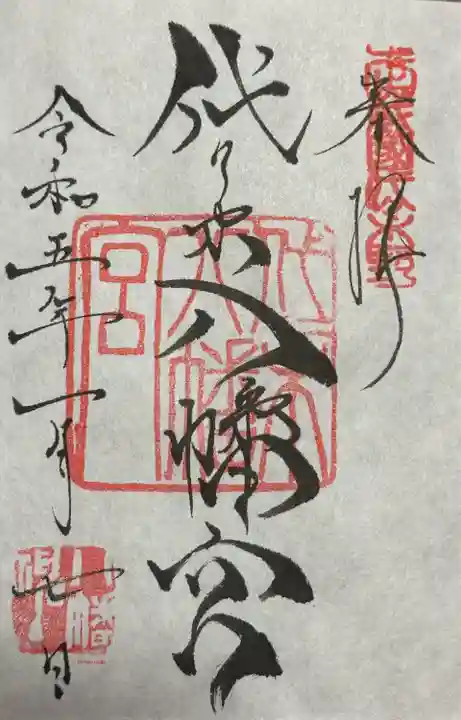 奉拝
代々木八幡宮
令和五年一月七日
代々木八幡宮
八幡